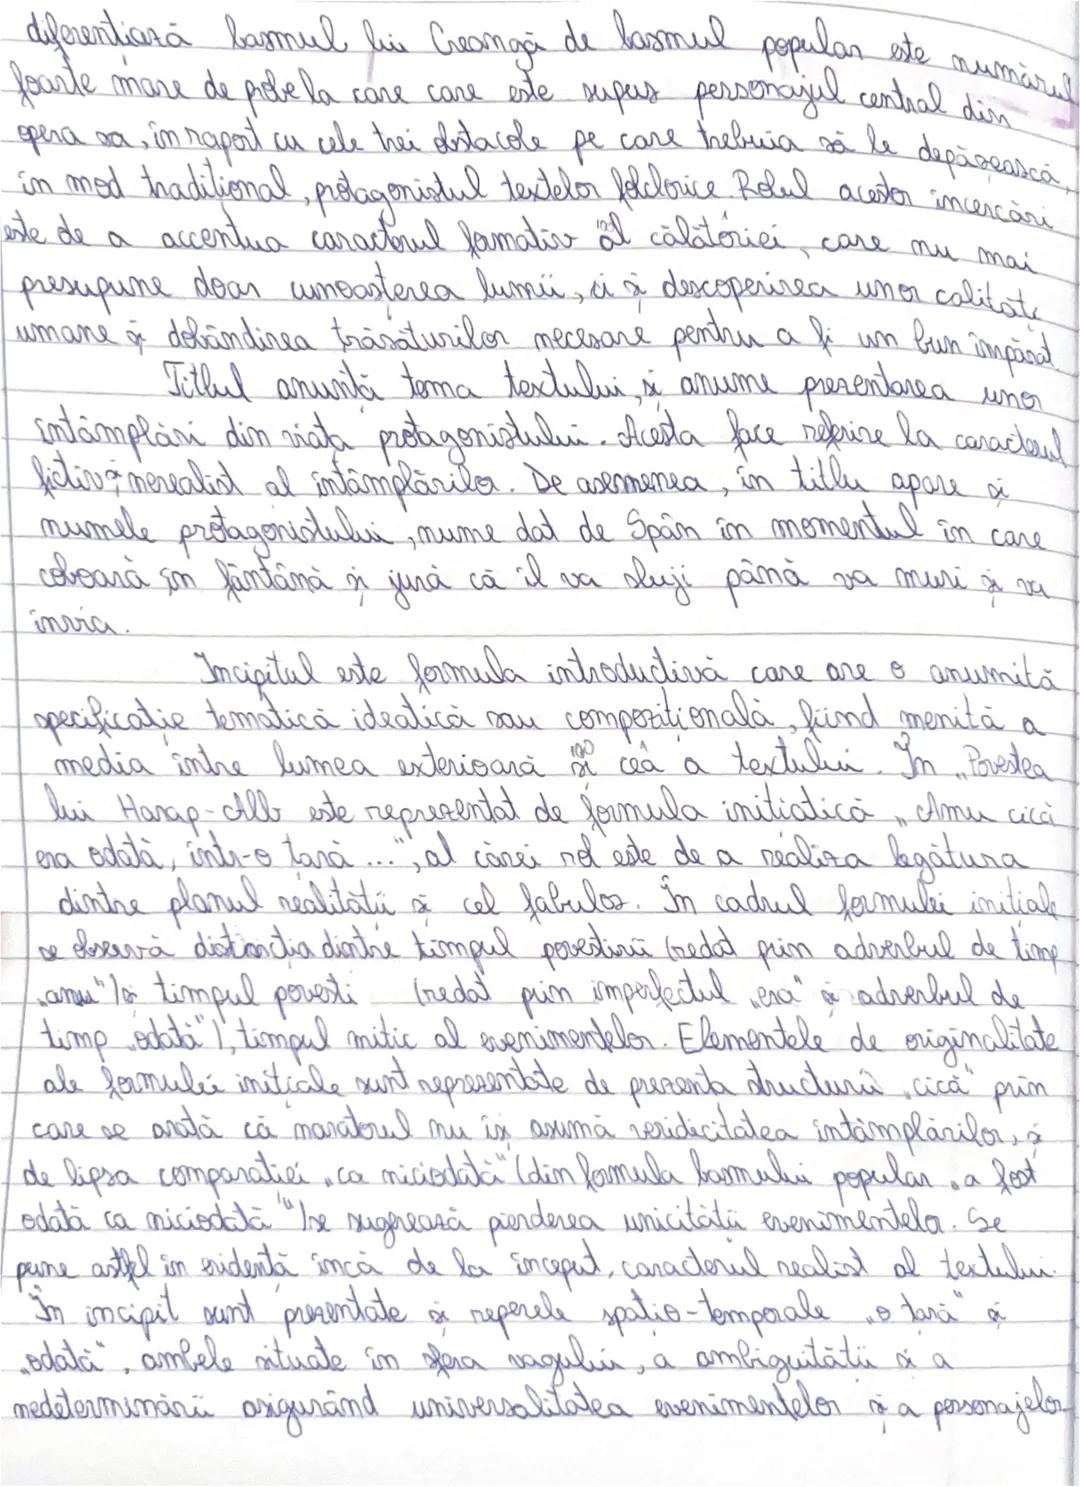 diferențiază basmul lui Creangă de basmul popular este numărul
foarte mare de probe la care care este supus personajul central din
opera sa, în raport cu cele trei obstacole pe care trebuia să le depășească,
în mod tradițional, protagonistul textelor folclorice. Rolul acestor încercări
este de a accentua caracterul formativ al călătoriei, care nu mai
presupune doar cunoașterea lumii, ci și descoperirea unor calități
umane și dobândirea trăsăturilor necesare pentru a fi un bun împărat.
Titlul anunță tema textului, și anume prezentarea unor
întâmplări din viața protagonistului. Acesta face referire la caracterul
fictiv și nerealist al întâmplărilor. De asemenea, în titlu apare și
numele protagonistului, nume dat de Spân în momentul în care
coboară în fântână și jură că îl va sluji până va muri și va
învia.
Incipitul este formula introductivă care are o anumită
specificație tematică ideatică sau compozițională, fiind menită a
media între lumea exterioară și cea a textului. In „Povestea
lui Harap-Alb este reprezentat de formula inițiatică „Amu cică
era odată, într-o țară ...", al cărei rol este de a realiza legătura
dintre planul realității și cel fabulos. În cadrul formulei inițiale
se observă distincția dintre timpul povestirii (redat prin adverbul de timp
„amu") și timpul povesti (redat prin imperfectul „era" și adverbul de
timp „odată"), timpul mitic al evenimentelor. Elementele de originalitate
ale formulei inițiale sunt reprezentate de prezența structurii „cică" prin
care se arată că naratorul nu își asumă veridicitatea întâmplărilor, și
de lipsa comparației „ca niciodată" (din formula basmului popular „a fost
odată ca niciodată") se sugerează pierderea unicității evenimentelor. Se
pune astfel în evidență încă de la început, caracterul realist al textului.
În incipit sunt prezentate și reperele spațio-temporale „o țară" și
„odată", ambele situate în sfera vagului, a ambiguității și a
nedeterminării asigurând universalitatea evenimentelor și a personajelor